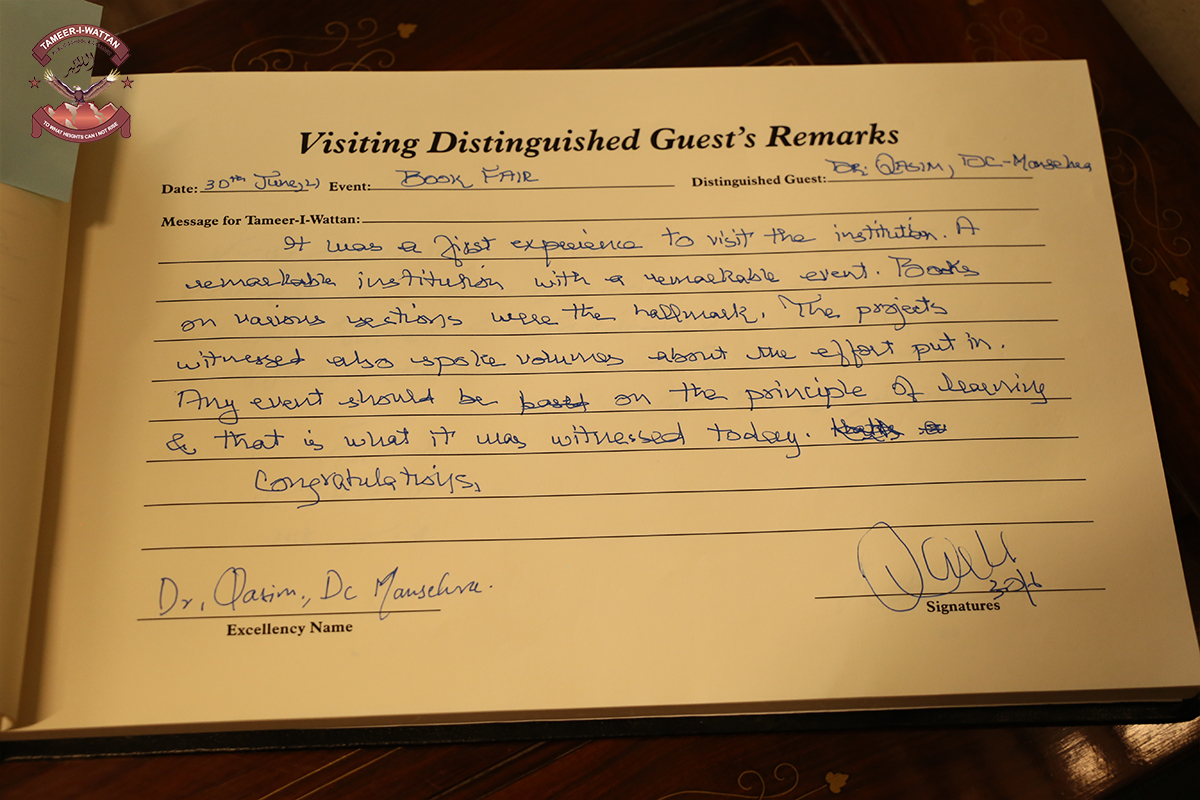 TAMEER-I-WATTAN
TO WHAT HEIGHTS CAN I NOT RISE
Visiting Distinguished Guest's Remarks
Date: 30th June, 21 Event: BOOK FAIR Distinguished Guest: DR. QASIM, DC-Mansehra
Message for Tameer-I-Wattan:
It was a first experience to visit the institution. A
remarkable institution with a remarkable event. Books
on various sections were the hallmark. The projects
witnessed also spoke volumes about the effort put in.
Any event should be based on the principle of learning
& that is what it was witnessed today.
Congratulations,
Dr. Qasim., DC Mansehra.
30/6
Excellency Name
Signatures